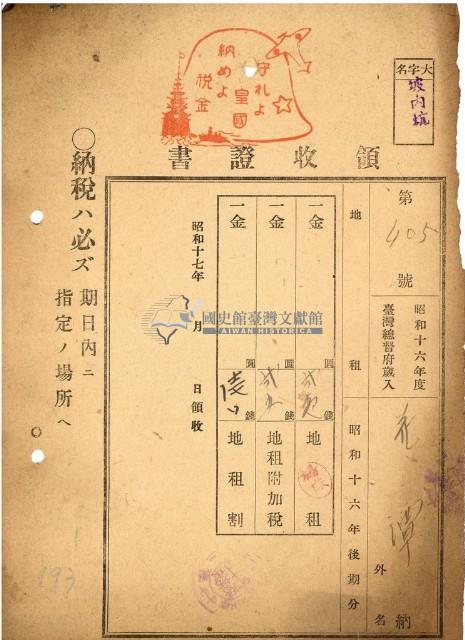 大字名
坡內坑
守れよ
皇國
納めよ
税金
領收證書
第405號
昭和十六年度
臺灣總督府歲入
納
外名
地租
昭和十六年後期分
一金
圓
錢
地租
一金
圓
錢
地租附加税
一金
圓
錢
地租割
昭和十七年
月
日領收
○納税ハ必ズ
期日內ニ
指定ノ場所ヘ
國史館臺灣文獻館
TAIWAN HISTORICA
193